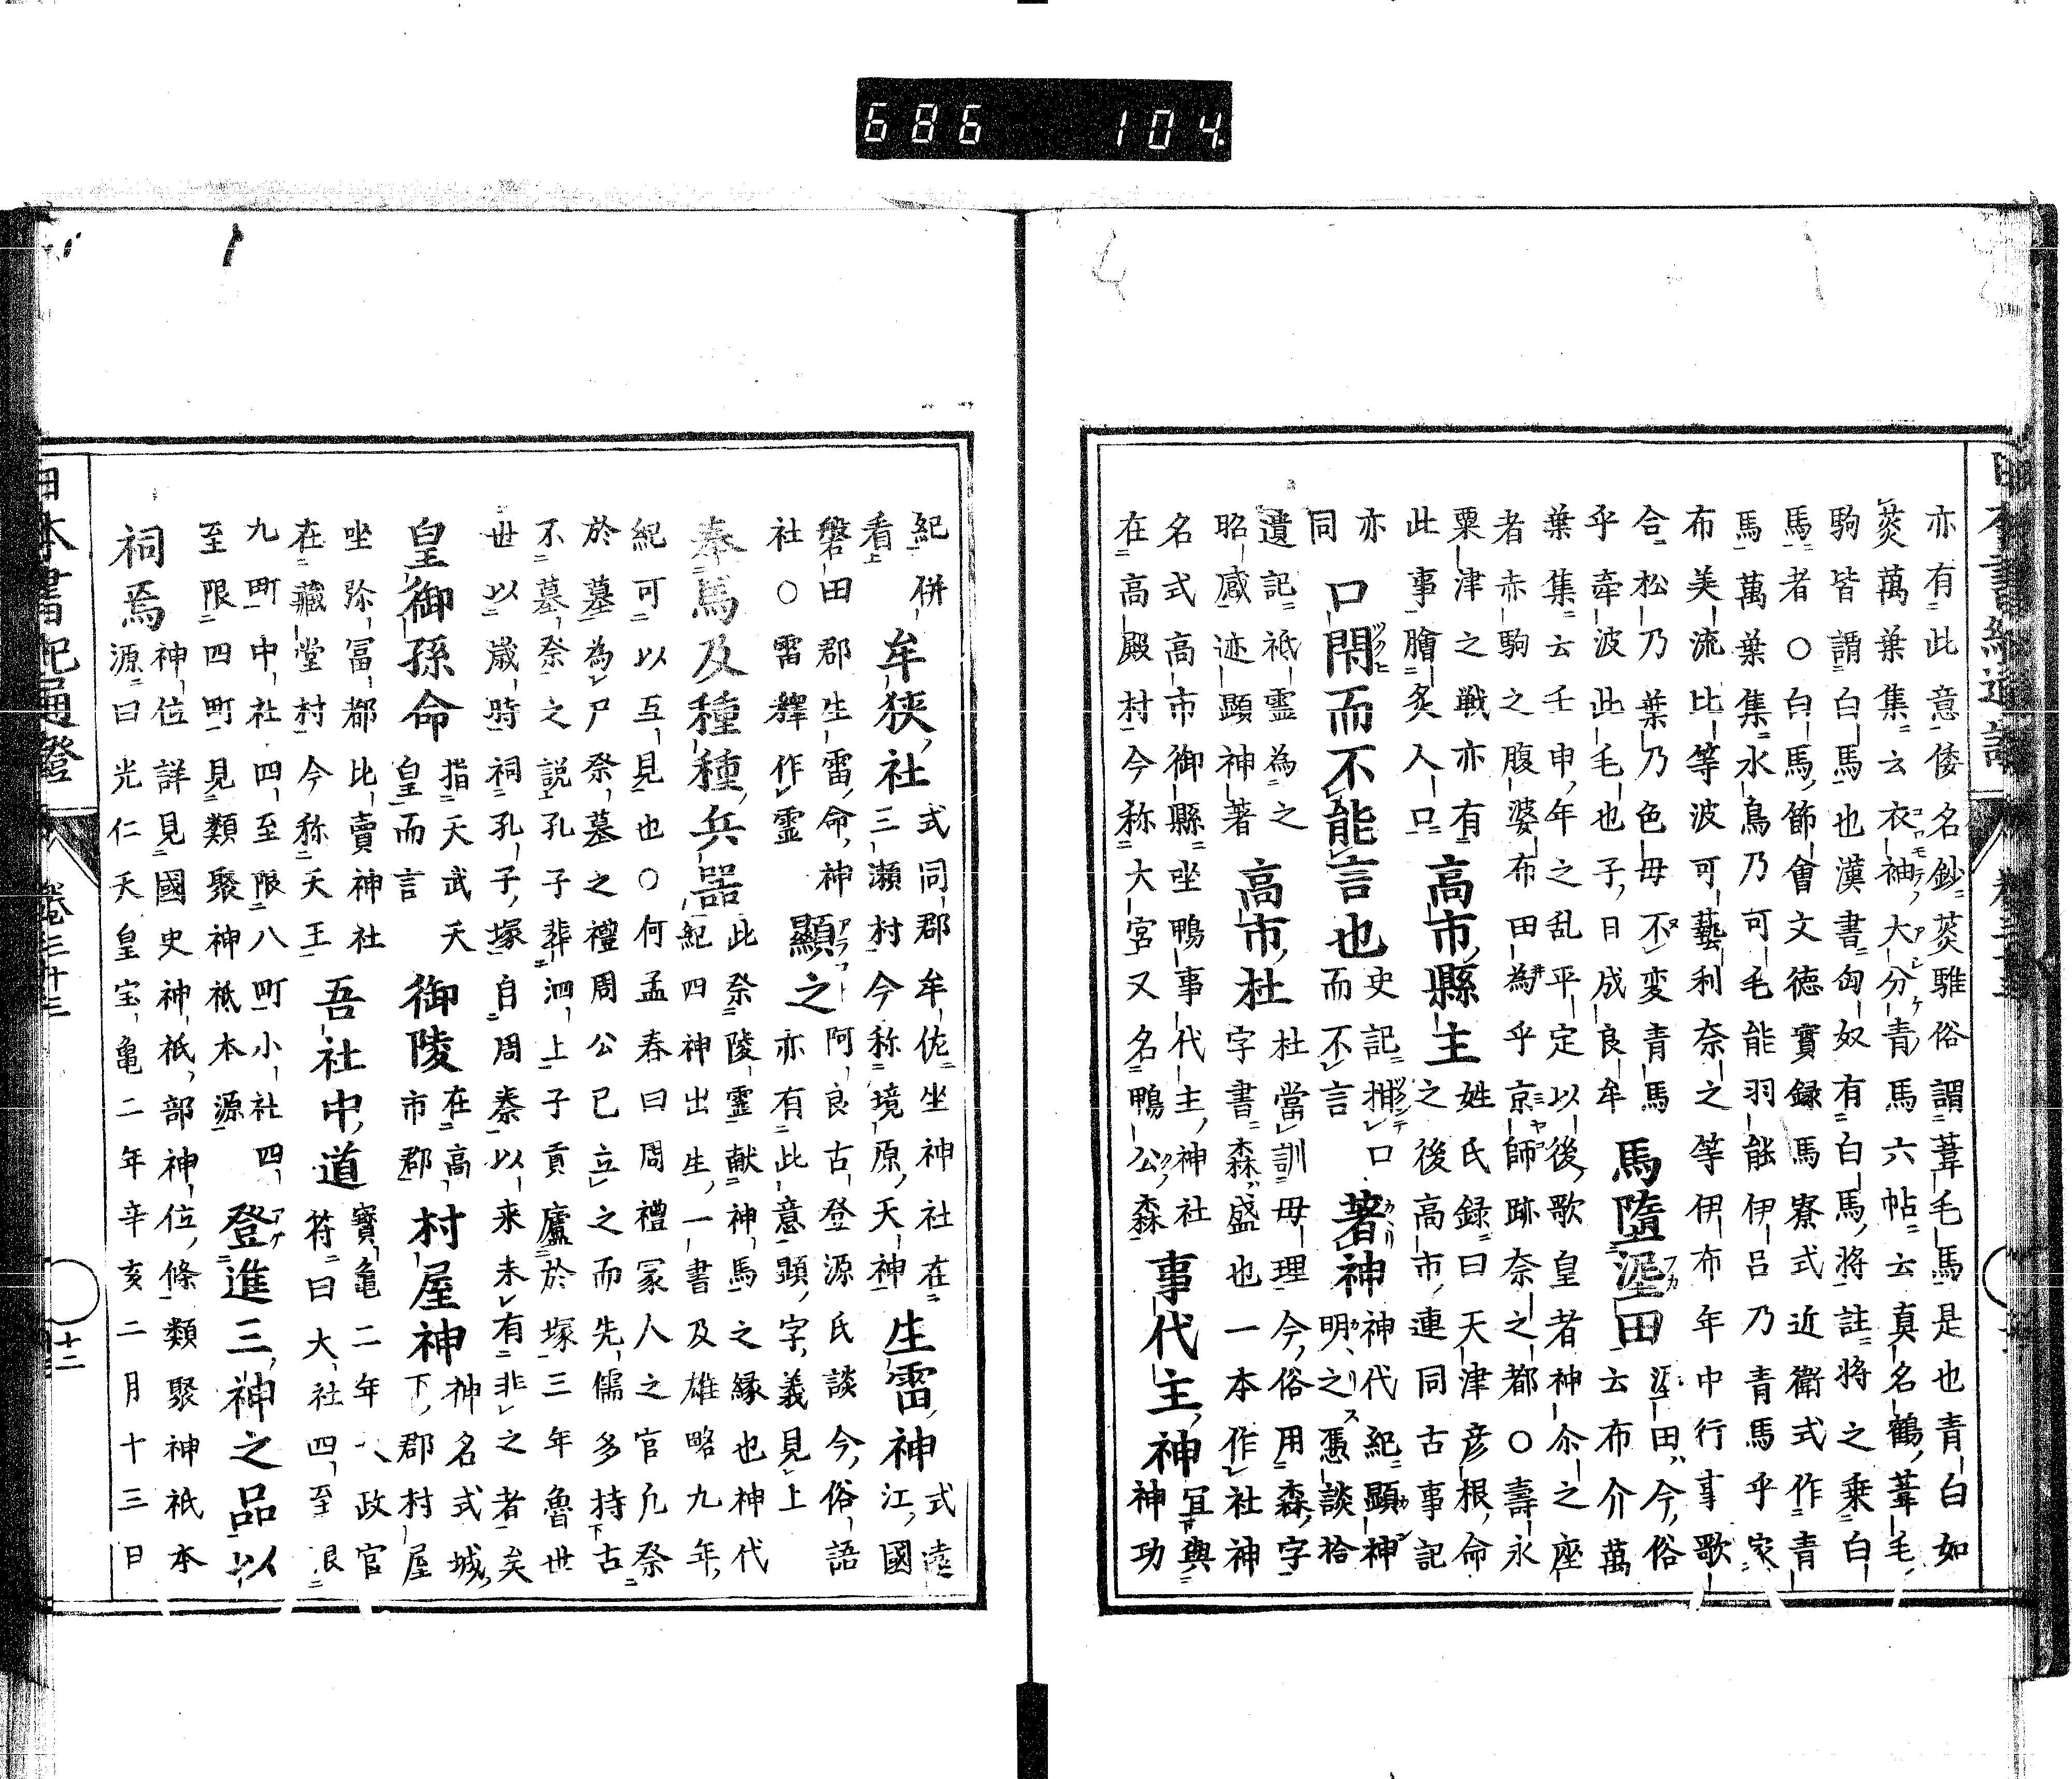 686 104
亦有此意倭名鈔菼騅俗謂葦毛馬是也青白如
菼萬葉集云衣袖大分青馬六帖云真名鶴葦毛
駒皆謂白馬也漢書匈奴有白馬將註將之乗白
馬者○白馬節會文徳實録馬寮式近衛式作青
馬萬葉集水鳥乃可毛能羽能伊呂乃青馬乎家
布美流比等波可藝利奈之等伊布年中行事歌
合松乃葉乃色毋不変青馬
馬隨泥田
泥田今俗
云布介萬
乎牽波此毛也子日成良牟
葉集云壬申年之乱平定以後歌皇者神尒之座
者赤駒之腹婆布田為乎京師跡奈之都○壽永
粟津之戦亦有
此事膾炙人口
高市縣主
姓氏録曰天津彦根命
之後高市連同古事記
亦
同
口閇而不能言也
史記掛口
而不言
著神
神代紀顕神
明之憑談拾
遺記祗霊為之
昭感迹顕神著
高市杜
杜當訓毋理今俗用森字
字書森盛也一本作社神
名式高市御縣坐鴨事代主神社
在高殿村今称大宮又名鴨公森
事代主神
冝與
神功
紀
看
併
牟狭社
式同郡牟佐坐神社在
三瀬村今称境原天神
生雷神
式逺
江國
磐田郡生雷命神
社○雷釋作霊
顯之
阿良古登源氏談今俗語
亦有此意顕字義見上
奉馬及種種兵器
此祭陵霊献神馬之縁也神代
紀四神出生一書及雄略九年
紀可以互見也○何孟春曰周禮冢人之官凡祭
於墓為尸祭墓之禮周公已立之而先儒多持古
不墓祭之説孔子葬泗上子貢廬於塚三年魯世
世以歳時祠孔子塚自周秦以来未有非之者矣
皇御孫命
指天武天
皇而言
御陵
在高
市郡
村屋神
神名式城
下郡村屋
坐弥冨都比賣神社
在藏堂村今称天王
吾社中道
寳亀二年八政官
苻曰大社四至限
九町中社四至限八町小社四
至限四町見類聚神祇本源
登進三神之品以
祠焉
神位詳見國史神祇部神位條類聚神祇本
源曰光仁天皇宝亀二年辛亥二月十三日
日本書紀通證
卷三十三
十二